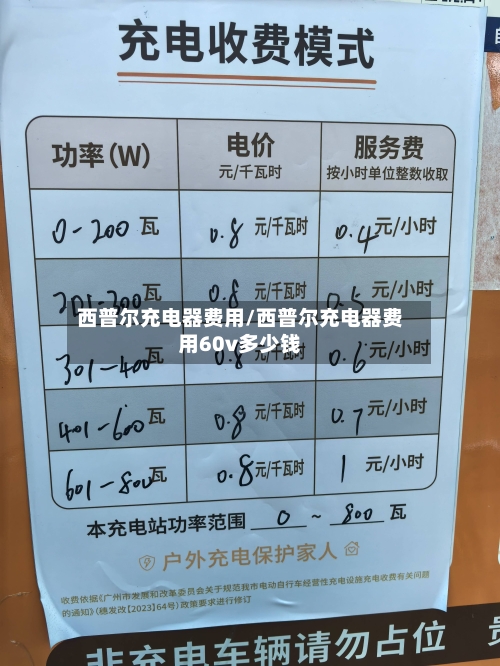 充电收费模式
功率(W) 电价 元/千瓦时 服务费 按小时单位整数收取
0-200瓦 0.8元/千瓦时 0.4元/小时
201-300瓦 0.8元/千瓦时 0.5元/小时
西普尔充电器费用/西普尔充电器费
用60v多少钱
301-400瓦 0.8元/千瓦时 0.6元/小时
401-600瓦 0.8元/千瓦时 0.7元/小时
601-800瓦 0.8元/千瓦时 1元/小时
本充电站功率范围 0 ~ 800 瓦
户外充电保护家人
收费依据《广州市发展和改革委员会关于规范我市电动自行车经营性充电设施充电收费有关问题
的通知》(穗发改【2023】64号)政策要求进行修订
非充电车辆请勿占位